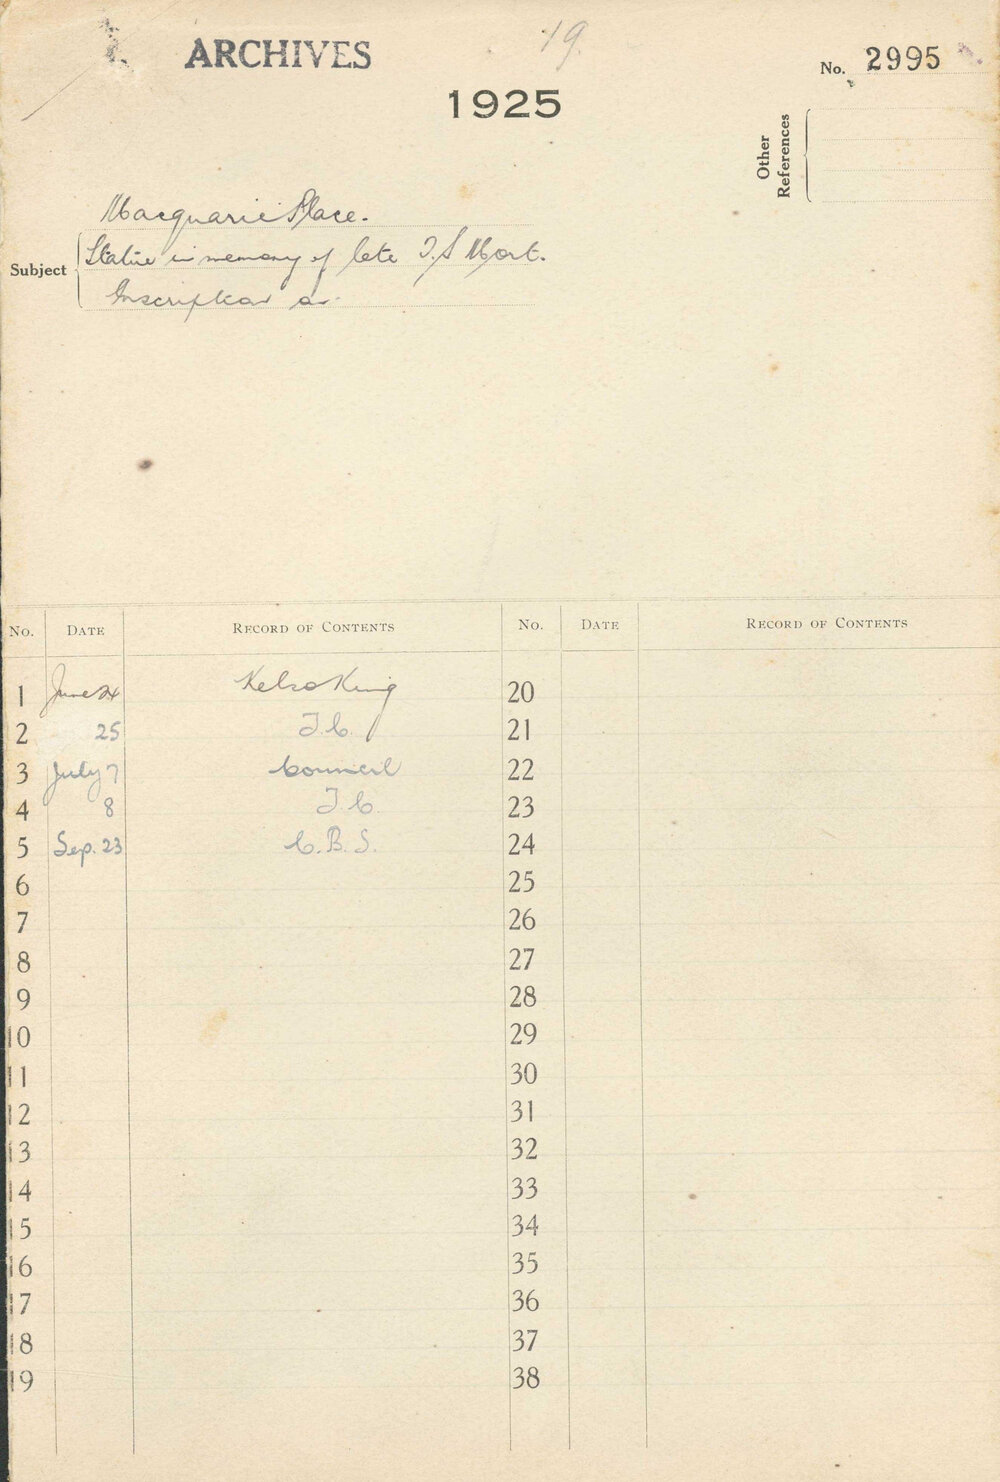 ARCHIVES
19
1925
No. 2995
Other References
Macquarie Place.
Subject
Statue in memory of late T.S Mort.
Inscription on
No. DATE RECORD OF CONTENTS No. DATE RECORD OF CONTENTS
1 June 24 Kelso King 20
2 25 T.C. 21
3 July 7 Council 22
4 8 T.C. 23
5 Sep. 23 C.B.S. 24
6 25
7 26
8 27
9 28
10 29
11 30
12 31
13 32
14 33
15 34
16 35
17 36
18 37
19 38